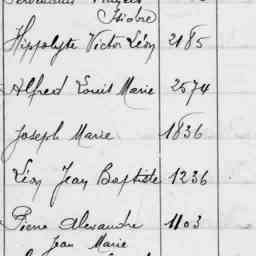 Isidore
Hippolyte Victor Léon 2185
Alfred Louis Marie 2574
Joseph Marie 1836
Léon Jean Baptiste 1236
Pierre Alexandre 1103
Jean Marie